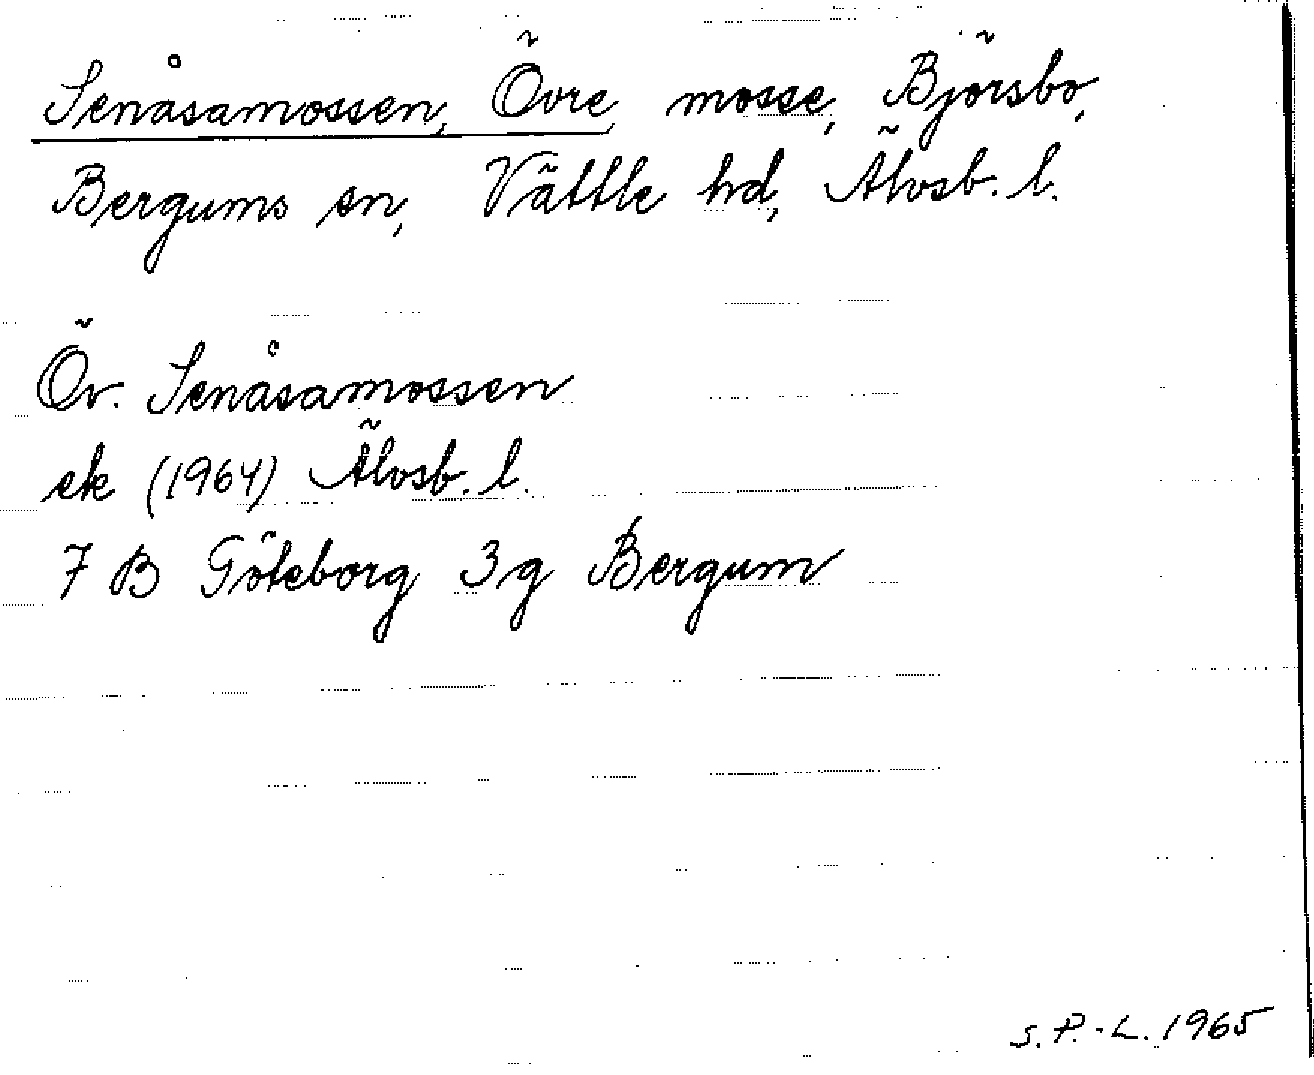 Senåsamossen, Övre, mosse, Björsbo,
Bergums sn, Vättle hd, Älvsb. l.
Öv. Senåsamossen
ek (1964) Älvsb. l.
7 B Göteborg 3g Bergum
S. P.-L. 1965